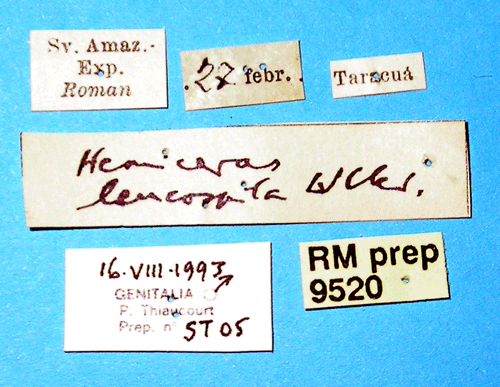 Sv. Amaz.-
Exp.
Roman
.27 febr.
Taracuá
Hemiceras
leucospila Wlkr.
16.VIII.1993
GENITALIA ♂
P. Thiaucourt
Prep. n° ST 05
RM prep
9520